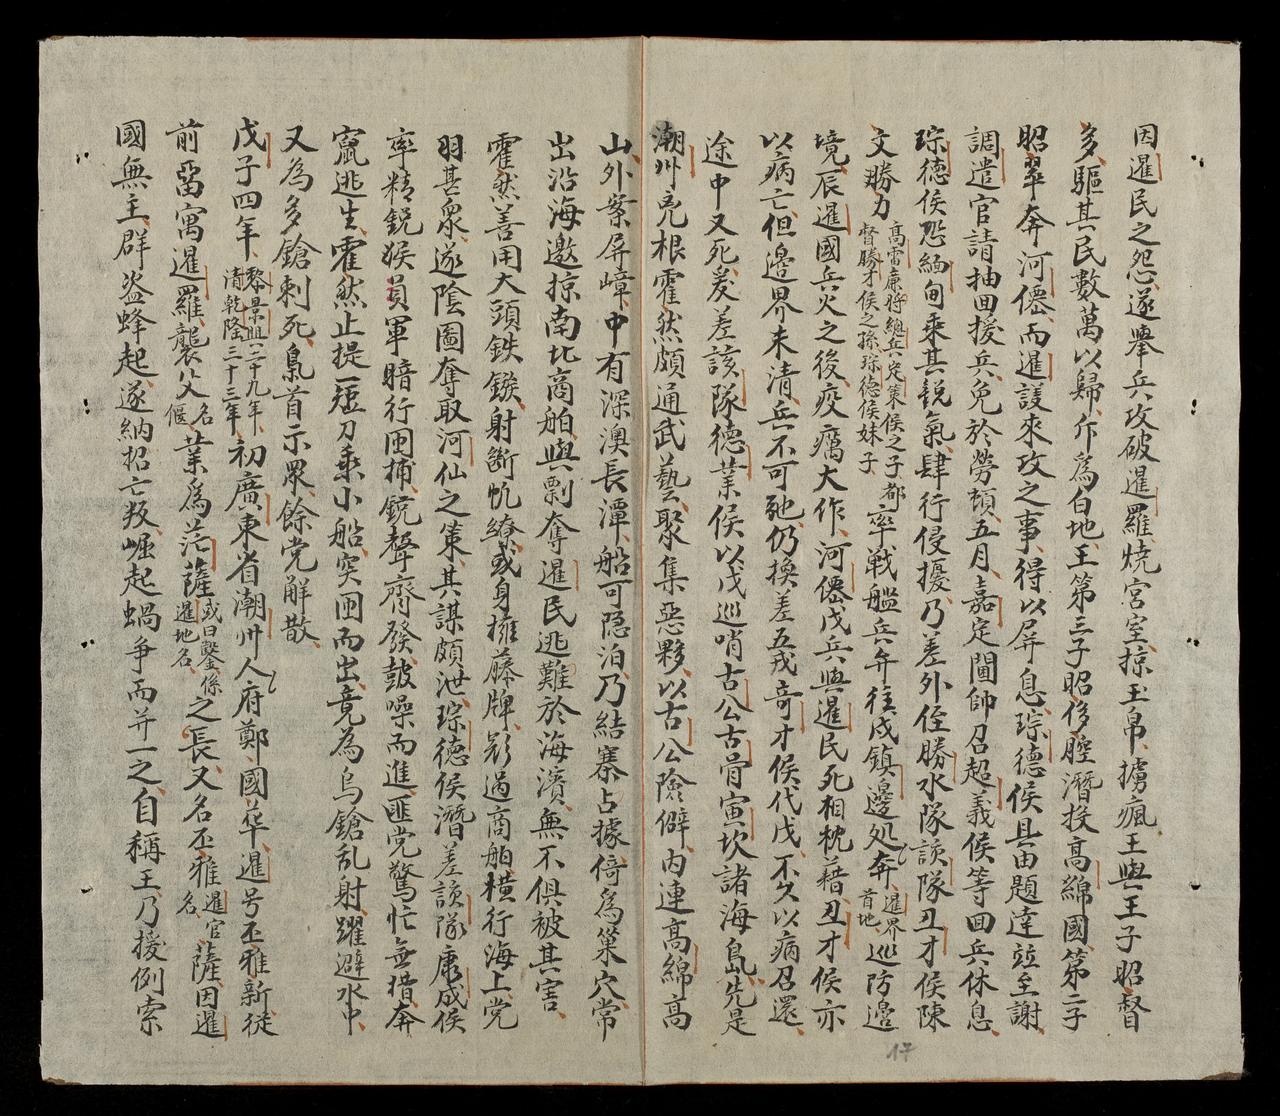 因暹民之怨遂舉兵攻破暹羅燒宮室掠玉帛擄瘋王與王子昭督
多驅其民數萬以歸亦為白地王第三子昭侈腔潛投高綿國第二子
昭翠奔河僊而暹謢來攻之事得以屏息琮德侯具由題達並至謝
調遣官請抽回援兵免於勞頓五月嘉定閫帥召超義侯等回兵休息
琮德侯恐緬甸乘其銳氣肆行侵擾乃差外侄勝水隊該隊丑才侯陳
文勝力高雷廉將總兵安策侯之子都督勝才侯之孫琮德侯妹子率戰艦兵弁往戍鎮邊処奔暹界首地巡防邊
境辰暹國兵火之後疫癘大作河僊戍兵與暹民死相枕藉丑才侯亦
以病亡但邊界未清兵不可弛仍換差五戎奇才侯代戍不久以病召還
途中又死爰差該隊德業侯以戊巡哨古公古骨寅坎諸海島先是
潮州堯根霍然頗通武藝聚集惡夥以古公險僻內連高綿高
山外案屏嶂中有深澳長潭船可隱泊乃結寨占據倚為巢穴常
出沿海邀掠南北商舶與剽奪暹民逃難於海濱無不俱被其害
霍然善用大頭鉄鏃射斷帆繚或身擁藤牌影過商舶橫行海上党
羽甚衆遂陰圖奪取河仙之策其謀頗泄琮德侯潛差該隊康成侯
率精銳猴員軍暗行闽捕銃聲齊發鼓噪而進匪党驚忙無措奔
竄逃生霍然止提一短刀乘小船突闽而出竟為鳥鎗乱射躍避水中
又為多鎗刺死梟首示眾餘党解散
戊子四年黎景興二十九年清乾隆三十三年初廣東省潮州人府鄭國華暹号丕雅新從
前畱寓暹羅襲父名偃業為茫薩或曰鏊係暹地名之長又名丕雅暹官名薩因暹
國無主群盜蜂起遂納招亡叛崛起蝸爭而并一之自稱王乃援例索
17